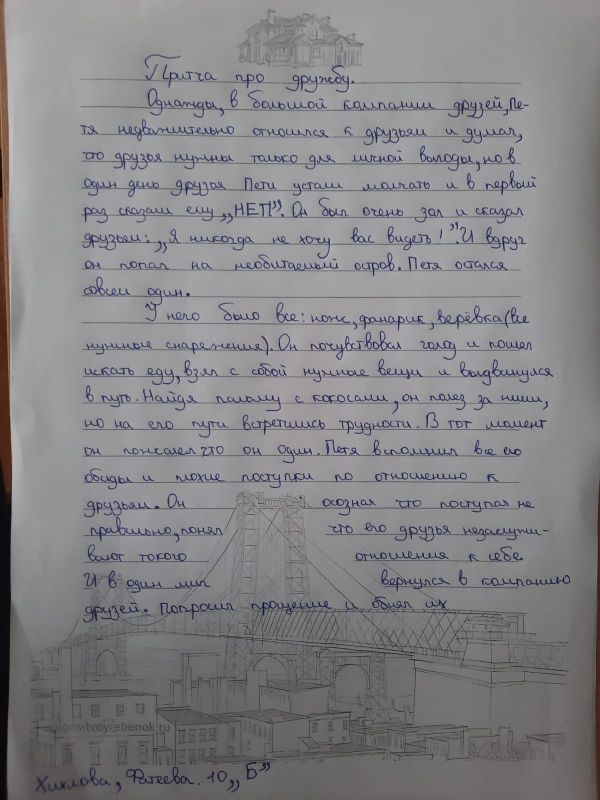 Притча про дружбу.
Однажды, в большой компании друзей, Пе-
тя неуважительно относился к друзьям и думал,
что друзья нужны только для личной выгоды, но в
один день друзья Пети устали молчать и в первый
раз сказали ему „НЕТ”. Он был очень зол и сказал
друзьям: „Я никогда не хочу вас видеть!”. И вдруг
он попал на необитаемый остров. Петя остался
совсем один.
У него было все: нож, фонарик, верёвка (все
нужные снаряжения). Он почувствовал голод и пошел
искать еду, взял с собой нужные вещи и выдвинулся
в путь. Найдя пальму с кокосами, он полез за ними,
но на его пути встретились трудности. В тот момент
он пожалел что он один. Петя вспомнил все его
обиды и плохие поступки по отношению к
друзьям. Он осознал что поступал не
правильно, понял что его друзья незаслужи-
вают токого отношения к себе.
И в один миг вернулся в компанию
друзей. Попросил прощение и обнял их
www.tvoyrebenok.ru
Фатеева. 10 „Б”